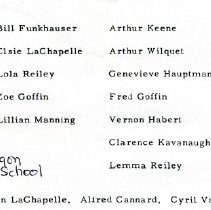 Bill Funkhauser Arthur Keene
Elsie LaChapelle Arthur Wilquet
Lola Reiley Genevieve Hauptman
Zoe Goffin Fred Goffin
Lillian Manning Vernon Habert
Clarence Kavanaugh
gon
School
Lemma Reiley
n LaChapelle, Alfred Cannard, Cyril Va